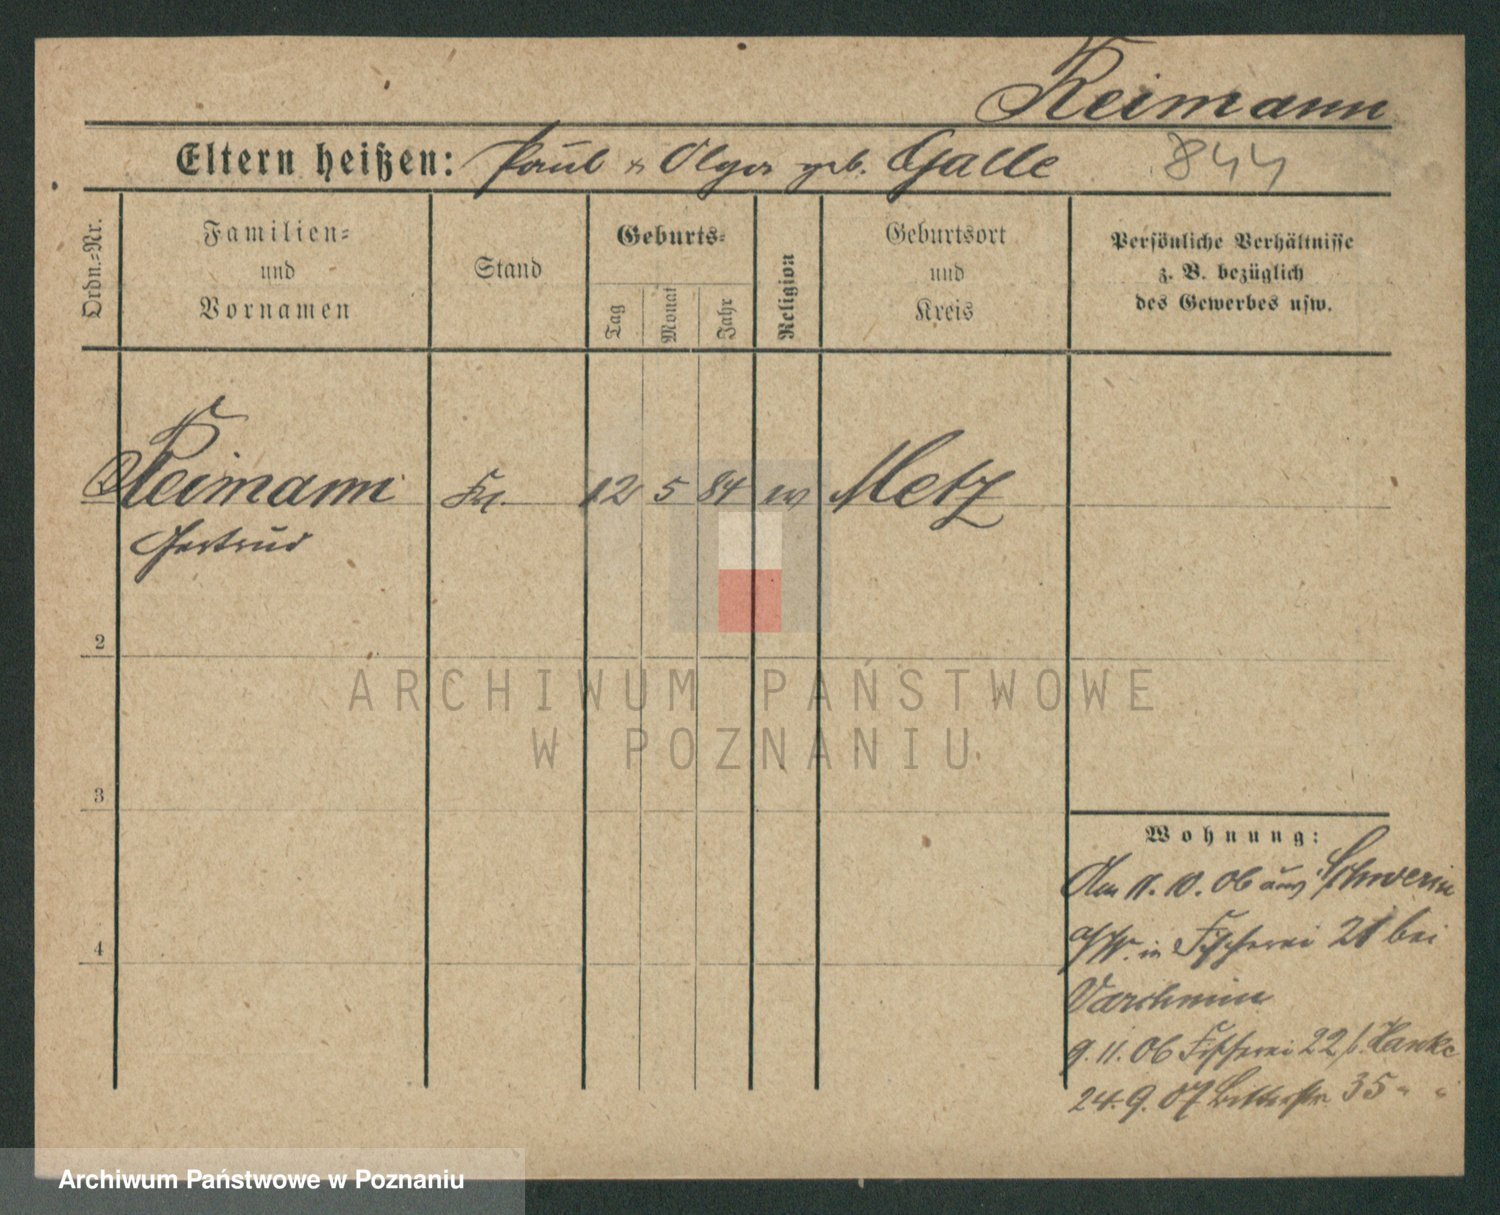 Reimann
Eltern heißen: Paul & Olga geb. Galle 844
Ordn.-Nr.
Familien-
und
Vornamen
Stand
Geburts-
Tag
Monat
Jahr
Religion
Geburtsort
und
Kreis
Persönliche Verhältnisse
z. B. bezüglich
des Gewerbes usw.
Reimann Frl. 12 5 84 ev Metz
Gertrud
2
3
4
Wohnung:
Am 11. 10. 06 aus Schwerin
in Fischerei 21 bei
9. 11. 06 Fischerei 22 b. Hanke
24. 9. 07 35 " "
ARCHIWUM PAŃSTWOWE
W POZNANIU
Archiwum Państwowe w Poznaniu